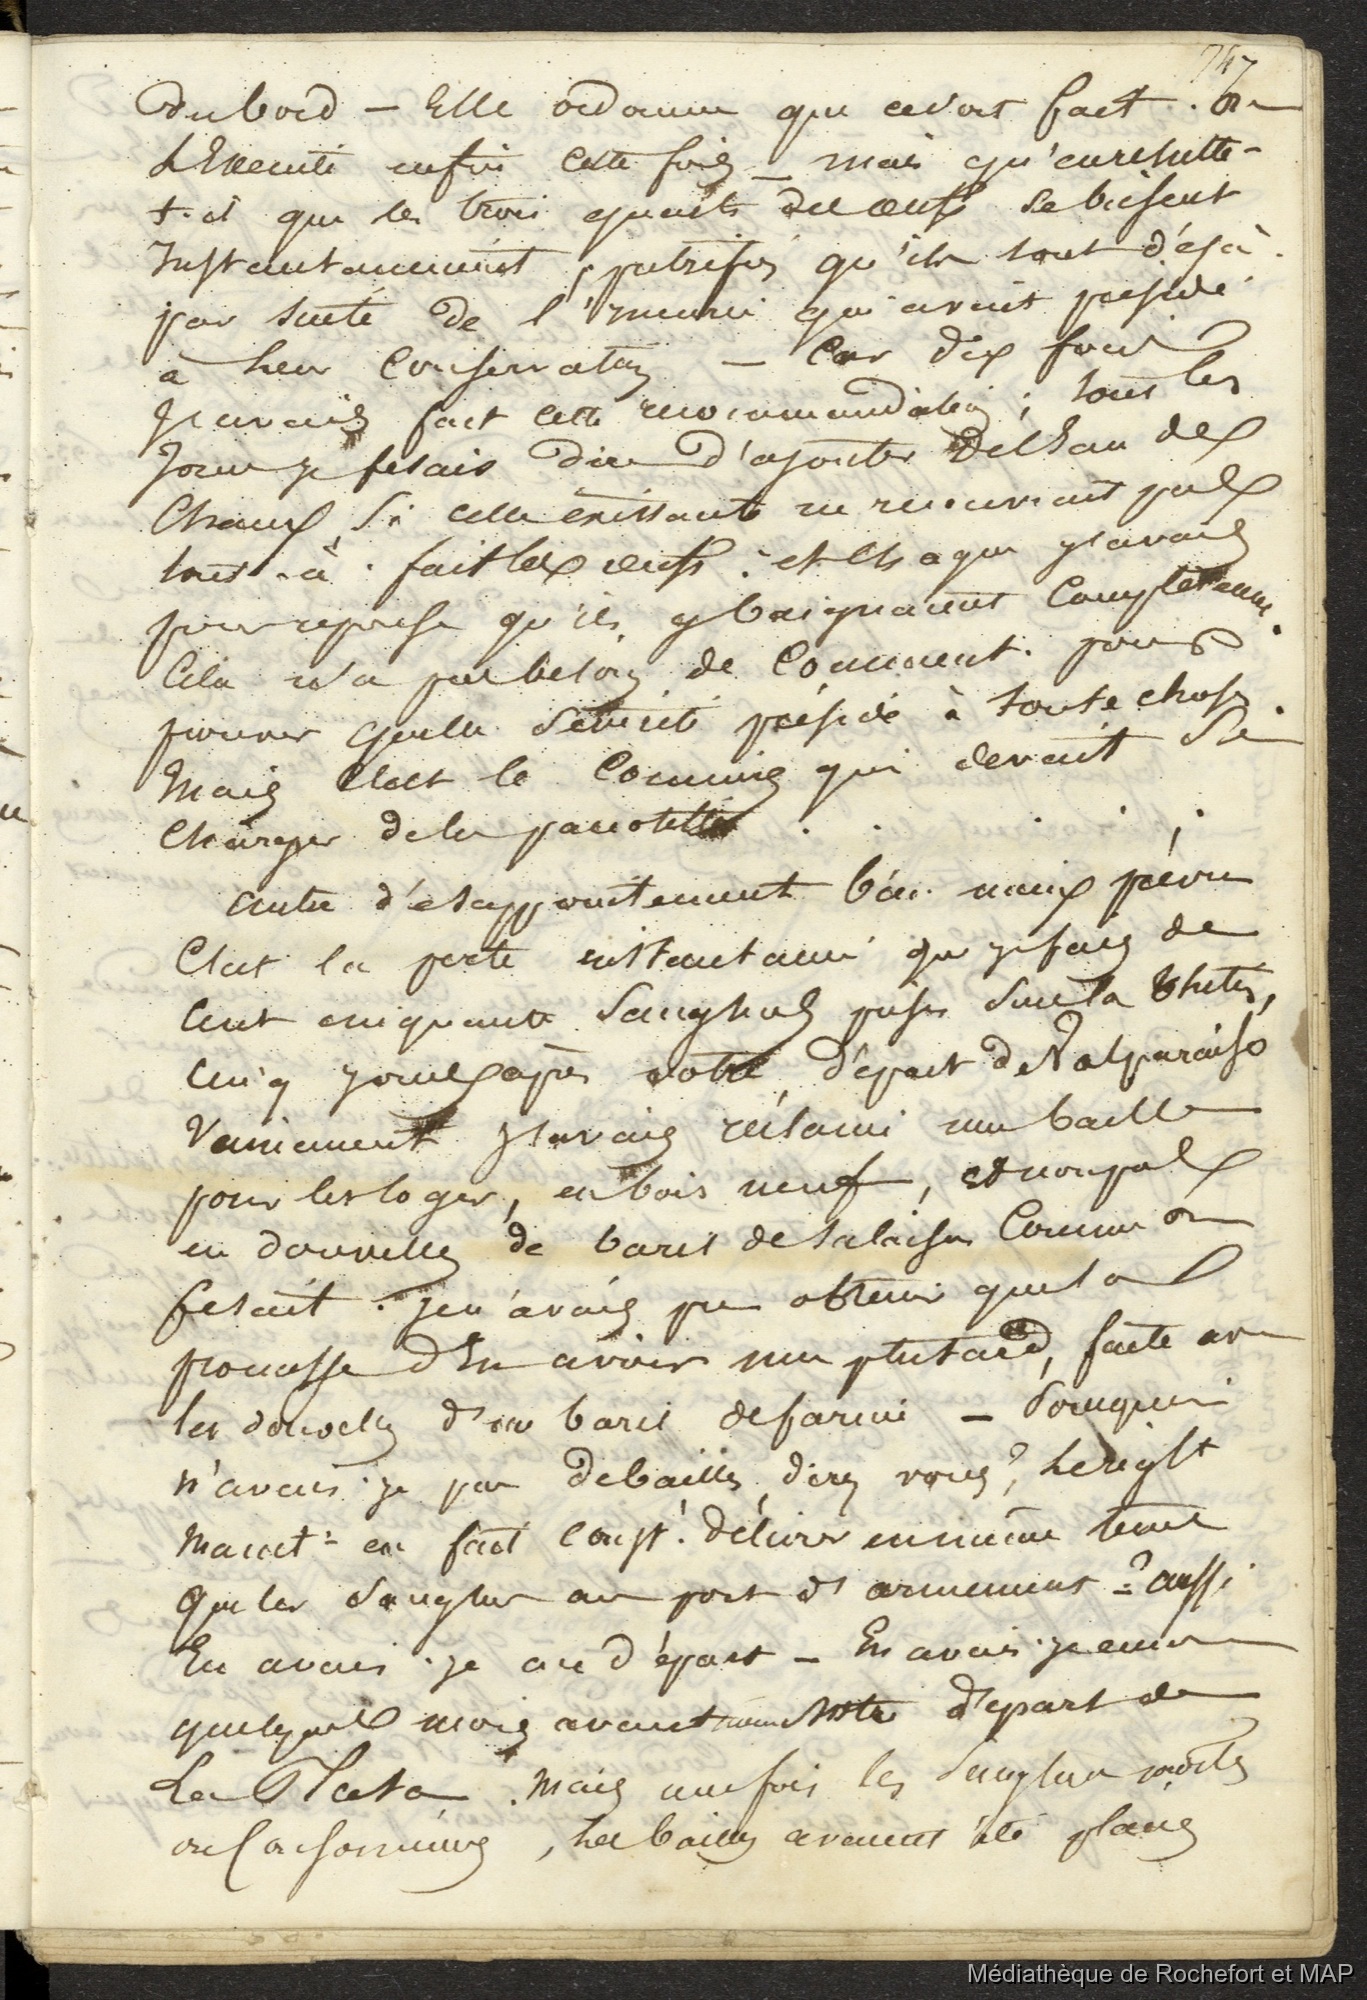 747
du bord — Elle ordonne que cela soit fait. On
L'Execute enfin cette fois — mais qu'en resulte-
t-il que les trois quarts des œufs se brisent
Instantanément, putrifiés qu'ils sont déjà
par suite de l'incurie qui avait présidé
à leur conservation — Car dix fois
J'avais fait cette recommandation; tous les
Jours je fesais dire d'ajouter de l'Eau de
Chaux, si celle existante ne recouvrait pas
tout-à-fait les œufs: et chaque j'avais
pour reponse qu'ils y baignaient Completemen.
Cela n'a pas besoin de Comment. pour
prouver quelle sévérité préside à toute chose.
Mais C'est le Commis qui devait se
Charger de la pacotille . . . . .
autre désappointement bien mieux prévu
C'est la perte instantanée que je fais de
Cent cinquante Sangsues prises sur la Thetis,
Cinq jours après notre départ de Valparaiso
Vainement j'avais réclamé une baille
pour les loger, en bois neuf, et non pas
en douvelles de barils de salaison Comme on
fesait. Je n'avais pu obtenir que la
promesse d'En avoir une plus tard, faite avec
les douvelles d'un baril de farine — Pourquoi
n'avais-je pas de bailles, direz vous?, Le régle
mant en fait délivrer en même tems
que les Sangsues au port d'armement? aussi
En avais-je au départ — En avais-je encore
quelques mois avant notre départ de
La Plata. Mais une fois les Sangsues mortes
ou Consommées, les bailles avaient été